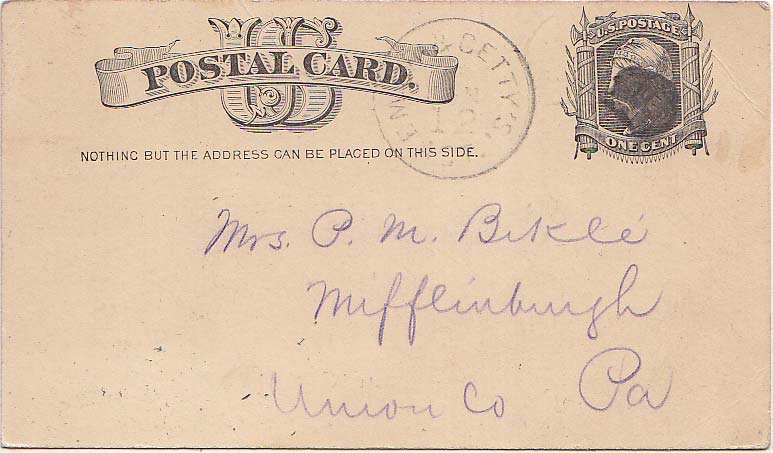 US
POSTAL CARD.
NOTHING BUT THE ADDRESS CAN BE PLACED ON THIS SIDE.
& GETTY'S.
12
U.S. POSTAGE
ONE CENT
Mrs. P. M. Biklé
Mifflinburgh
Union Co Pa